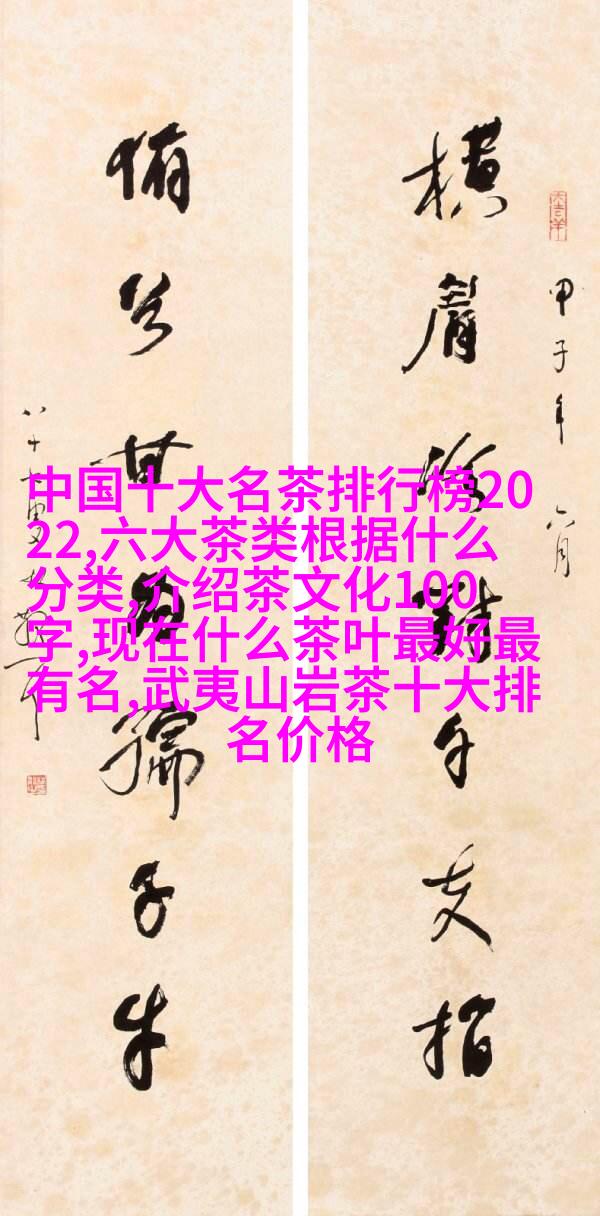 横眉冷對千夫指
甲子年 六月
俯首甘為孺子牛
八十七叟林散耳
中国十大名茶排行榜20
22,六大茶类根据什么
分类,介绍茶文化100
字,现在什么茶叶最好最
有名,武夷山岩茶十大排
名价格